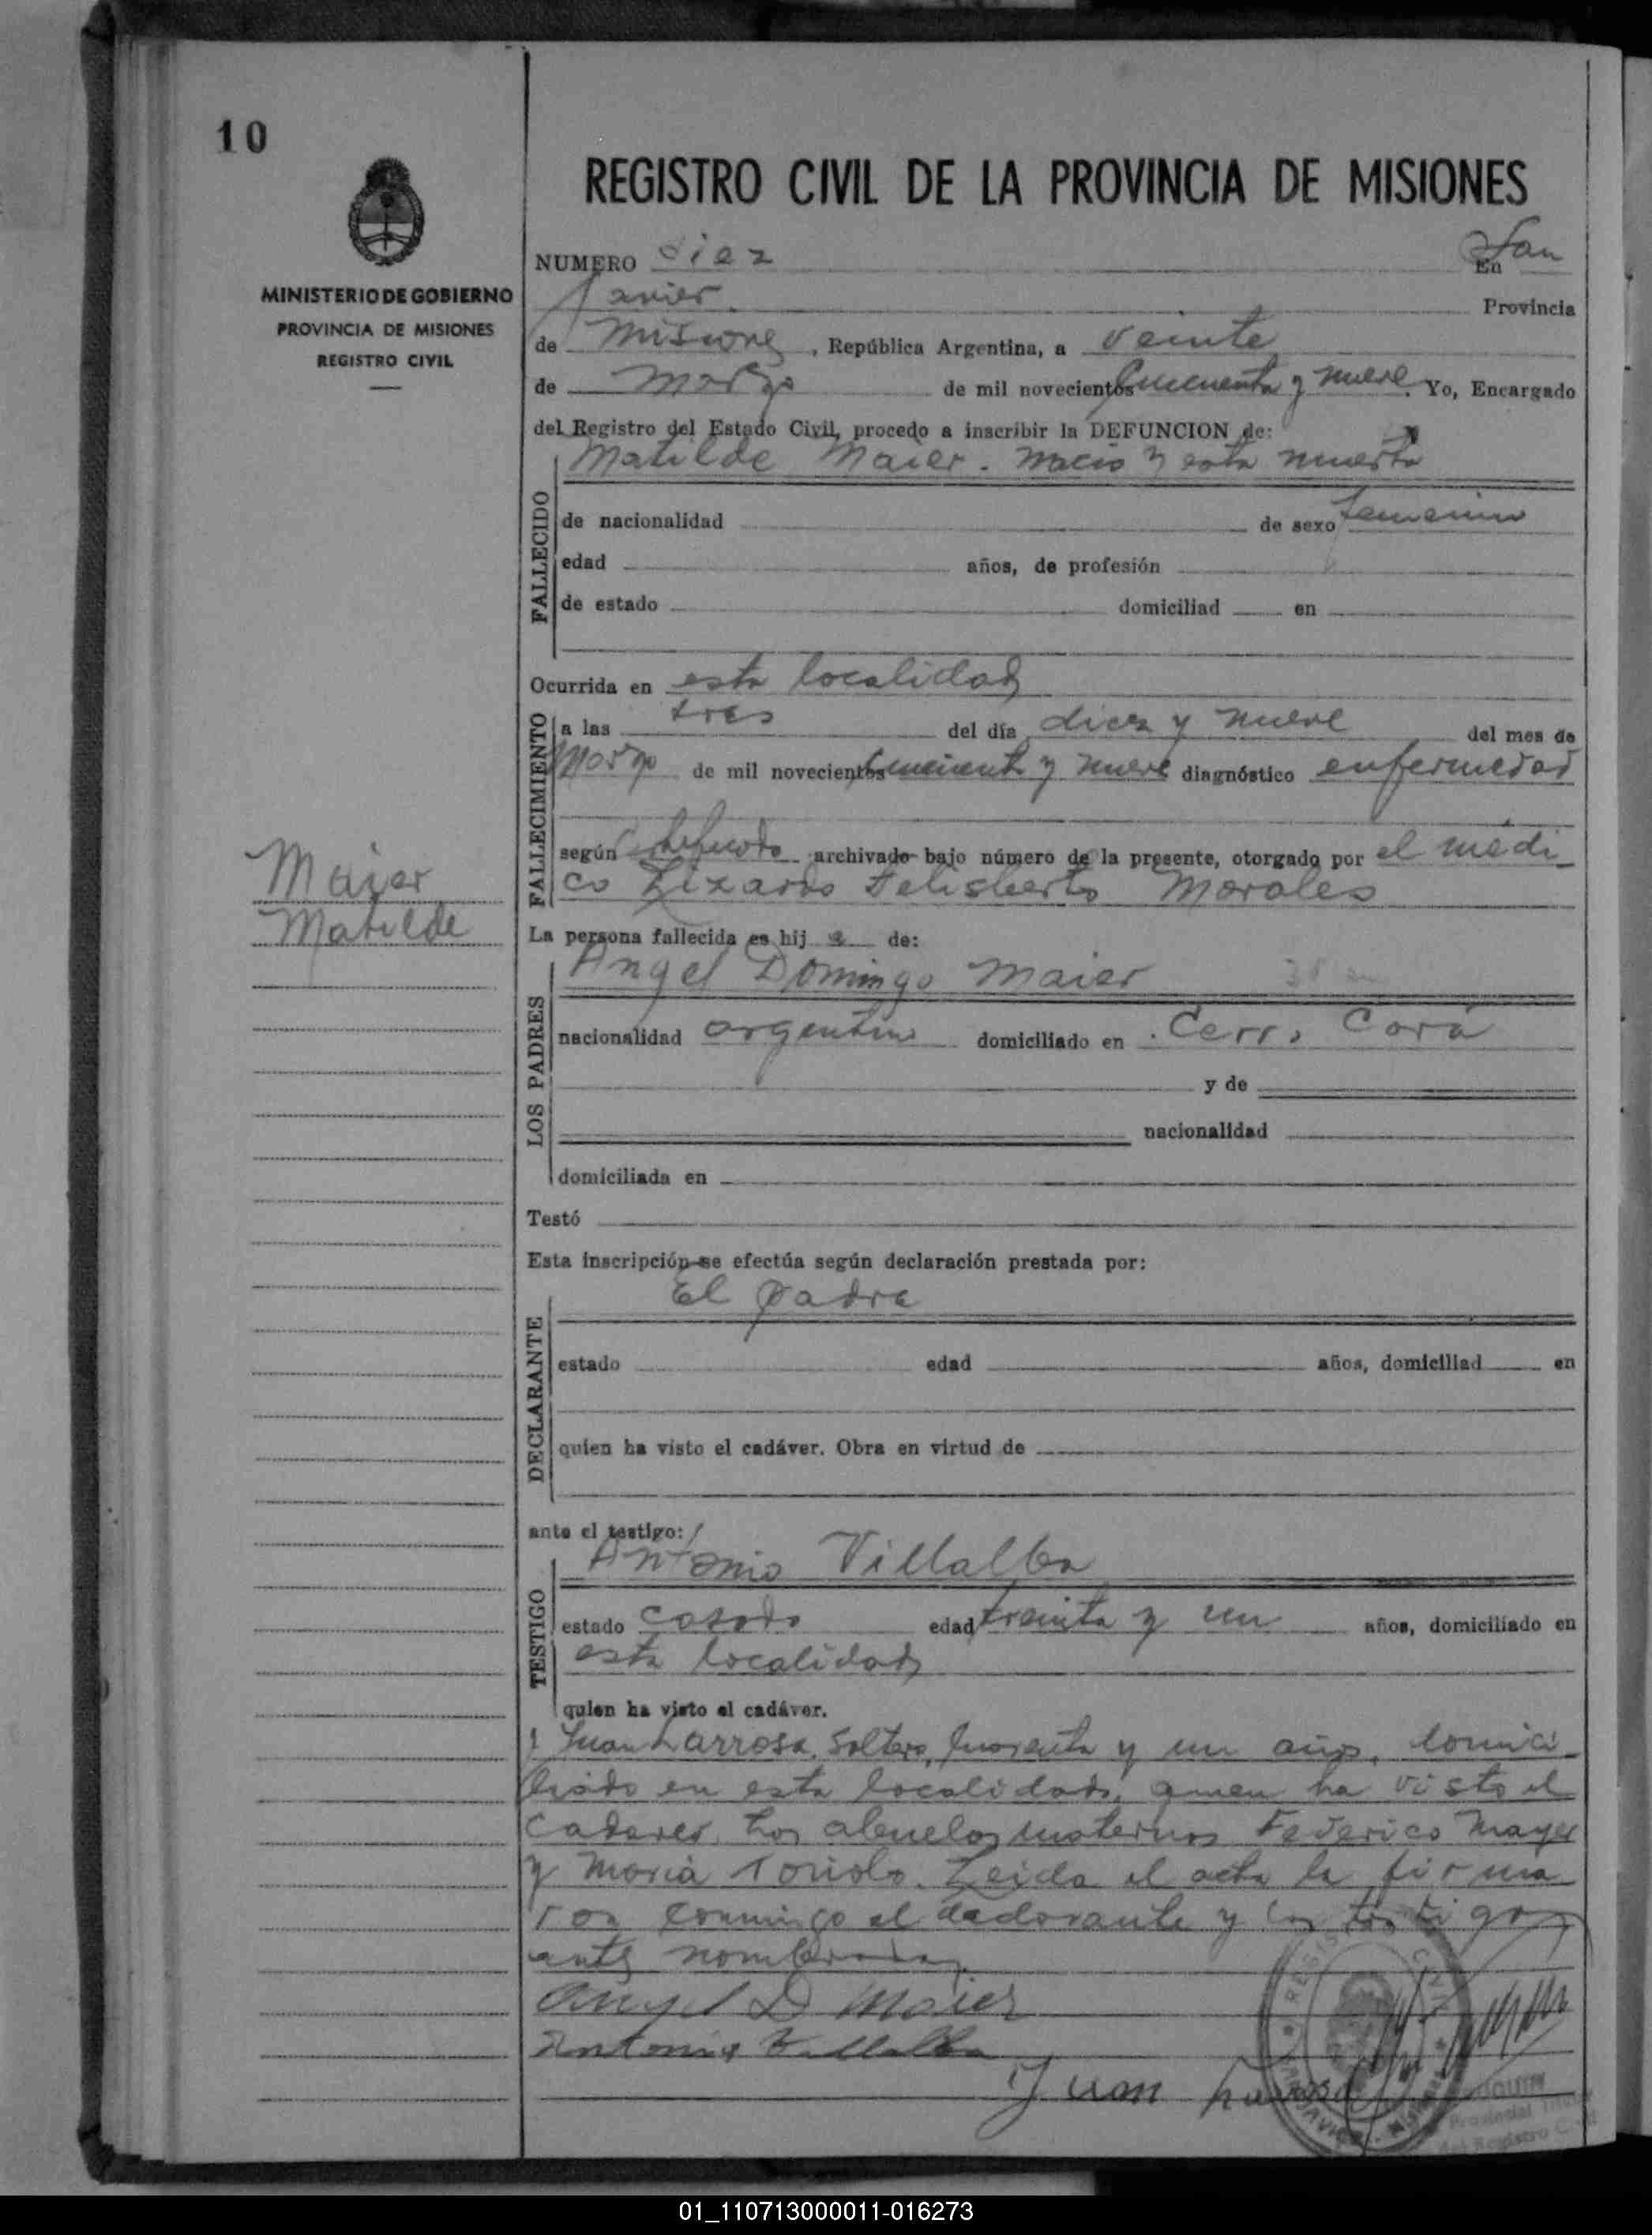 10
REGISTRO CIVIL DE LA PROVINCIA DE MISIONES
MINISTERIO DE GOBIERNO
PROVINCIA DE MISIONES
REGISTRO CIVIL
NUMERO diez En San
Javier Provincia
de Misiones, República Argentina, a veinte
de marzo de mil novecientos cincuenta y nueve. Yo, Encargado
del Registro del Estado Civil, procedo a inscribir la DEFUNCION de:
Matilde Maier. nacio y esta muerta
FALLECIDO
de nacionalidad de sexo femenino
edad años, de profesión
de estado domiciliad en
Ocurrida en esta localidad
FALLECIMIENTO
a las tres del día diez y nueve del mes de
Marzo de mil novecientos cincuenta y nueve diagnóstico enfermedad
según Certificado archivado bajo número de la presente, otorgado por el médi-
co Lizardo Felisberto Morales
Maier
Matilde
La persona fallecida es hija de:
LOS PADRES
Angel Domingo Maier
nacionalidad argentino domiciliado en Cerro Corá
y de
nacionalidad
domiciliada en
Testó
Esta inscripción se efectúa según declaración prestada por:
DECLARANTE
El padre
estado edad años, domiciliad en
quien ha visto el cadáver. Obra en virtud de
ante el testigo:
TESTIGO
Antonio Villalba
estado casado edad treinta y un años, domiciliado en
esta localidad
quien ha visto el cadáver.
y Juan Larrosa, soltero, cuarenta y un años, domici-
liado en esta localidad, quien ha visto el
cadaver. Los abuelos maternos Federico Mayer
y Maria Toriolo. Leida el acta la firma
ron conmigo el declarante y los testigos
antes nombrados.
Angel D Maier
Antonio Villalba
Juan Larrosa
01_110713000011-016273